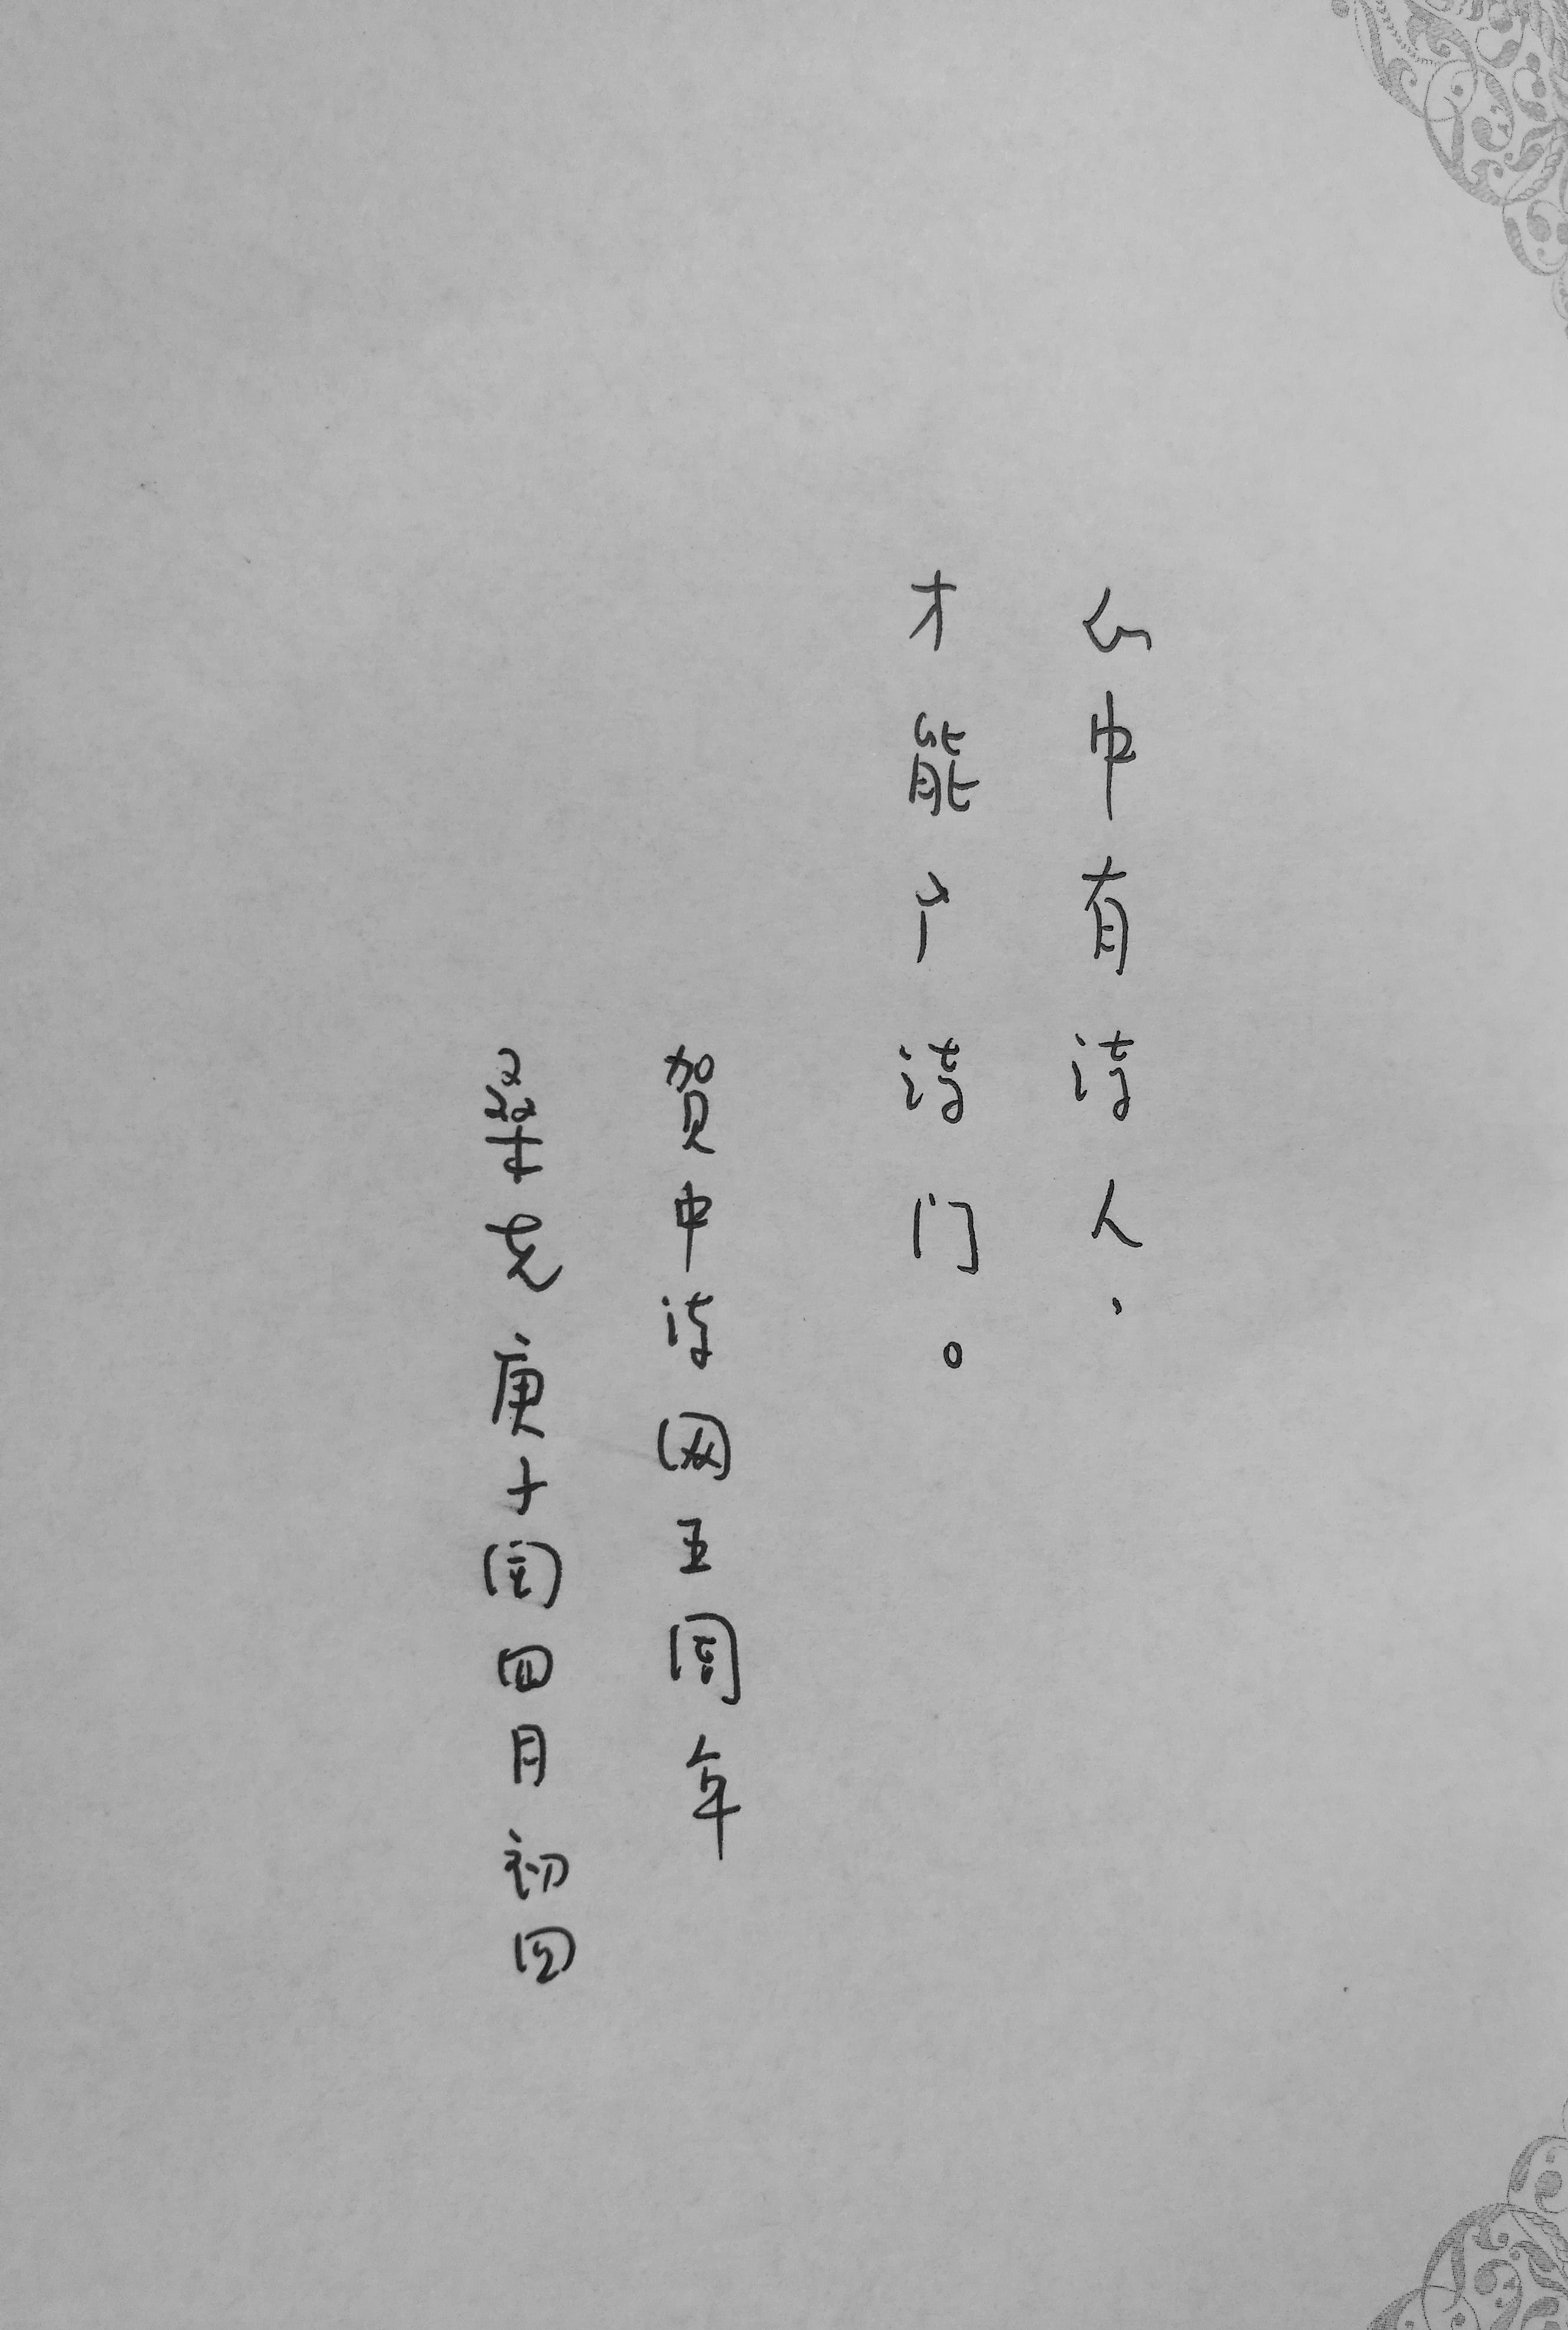 心中有诗人，
才能诗门。
贺中诗网五周年
桑克庚子闰四月初四